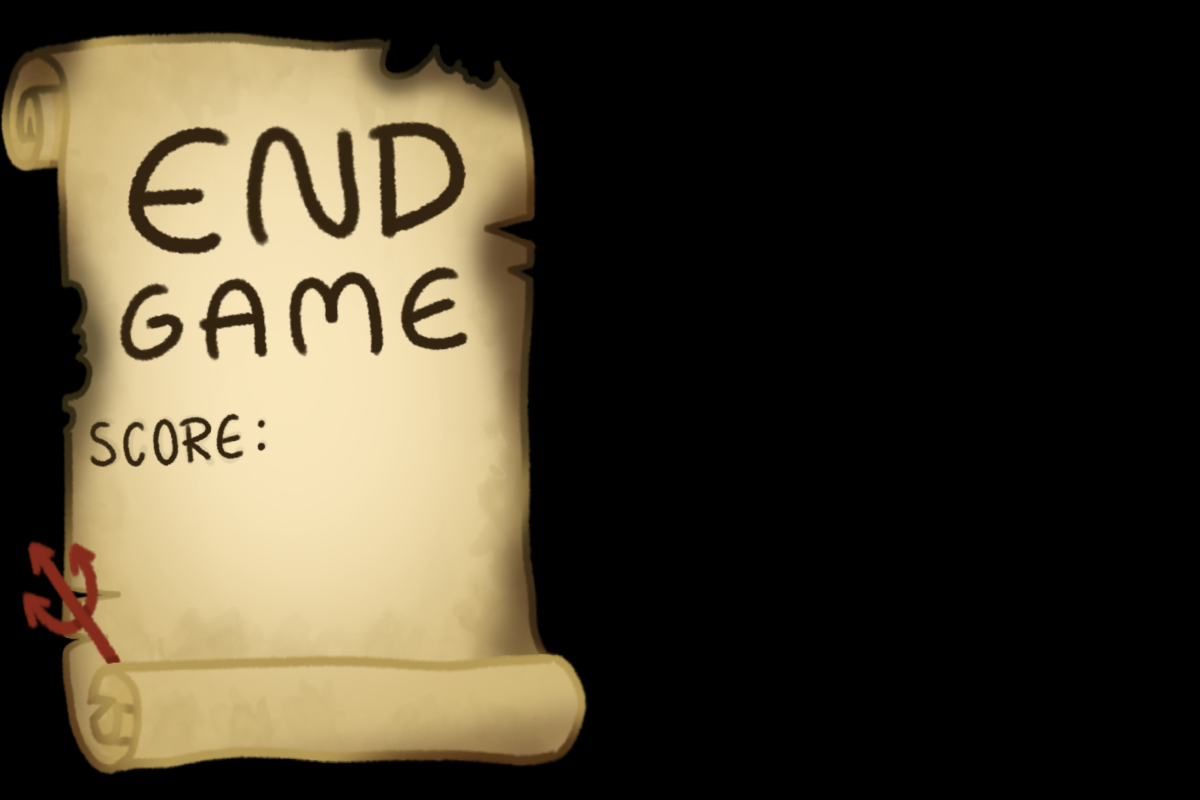 END
GAME
SCORE: